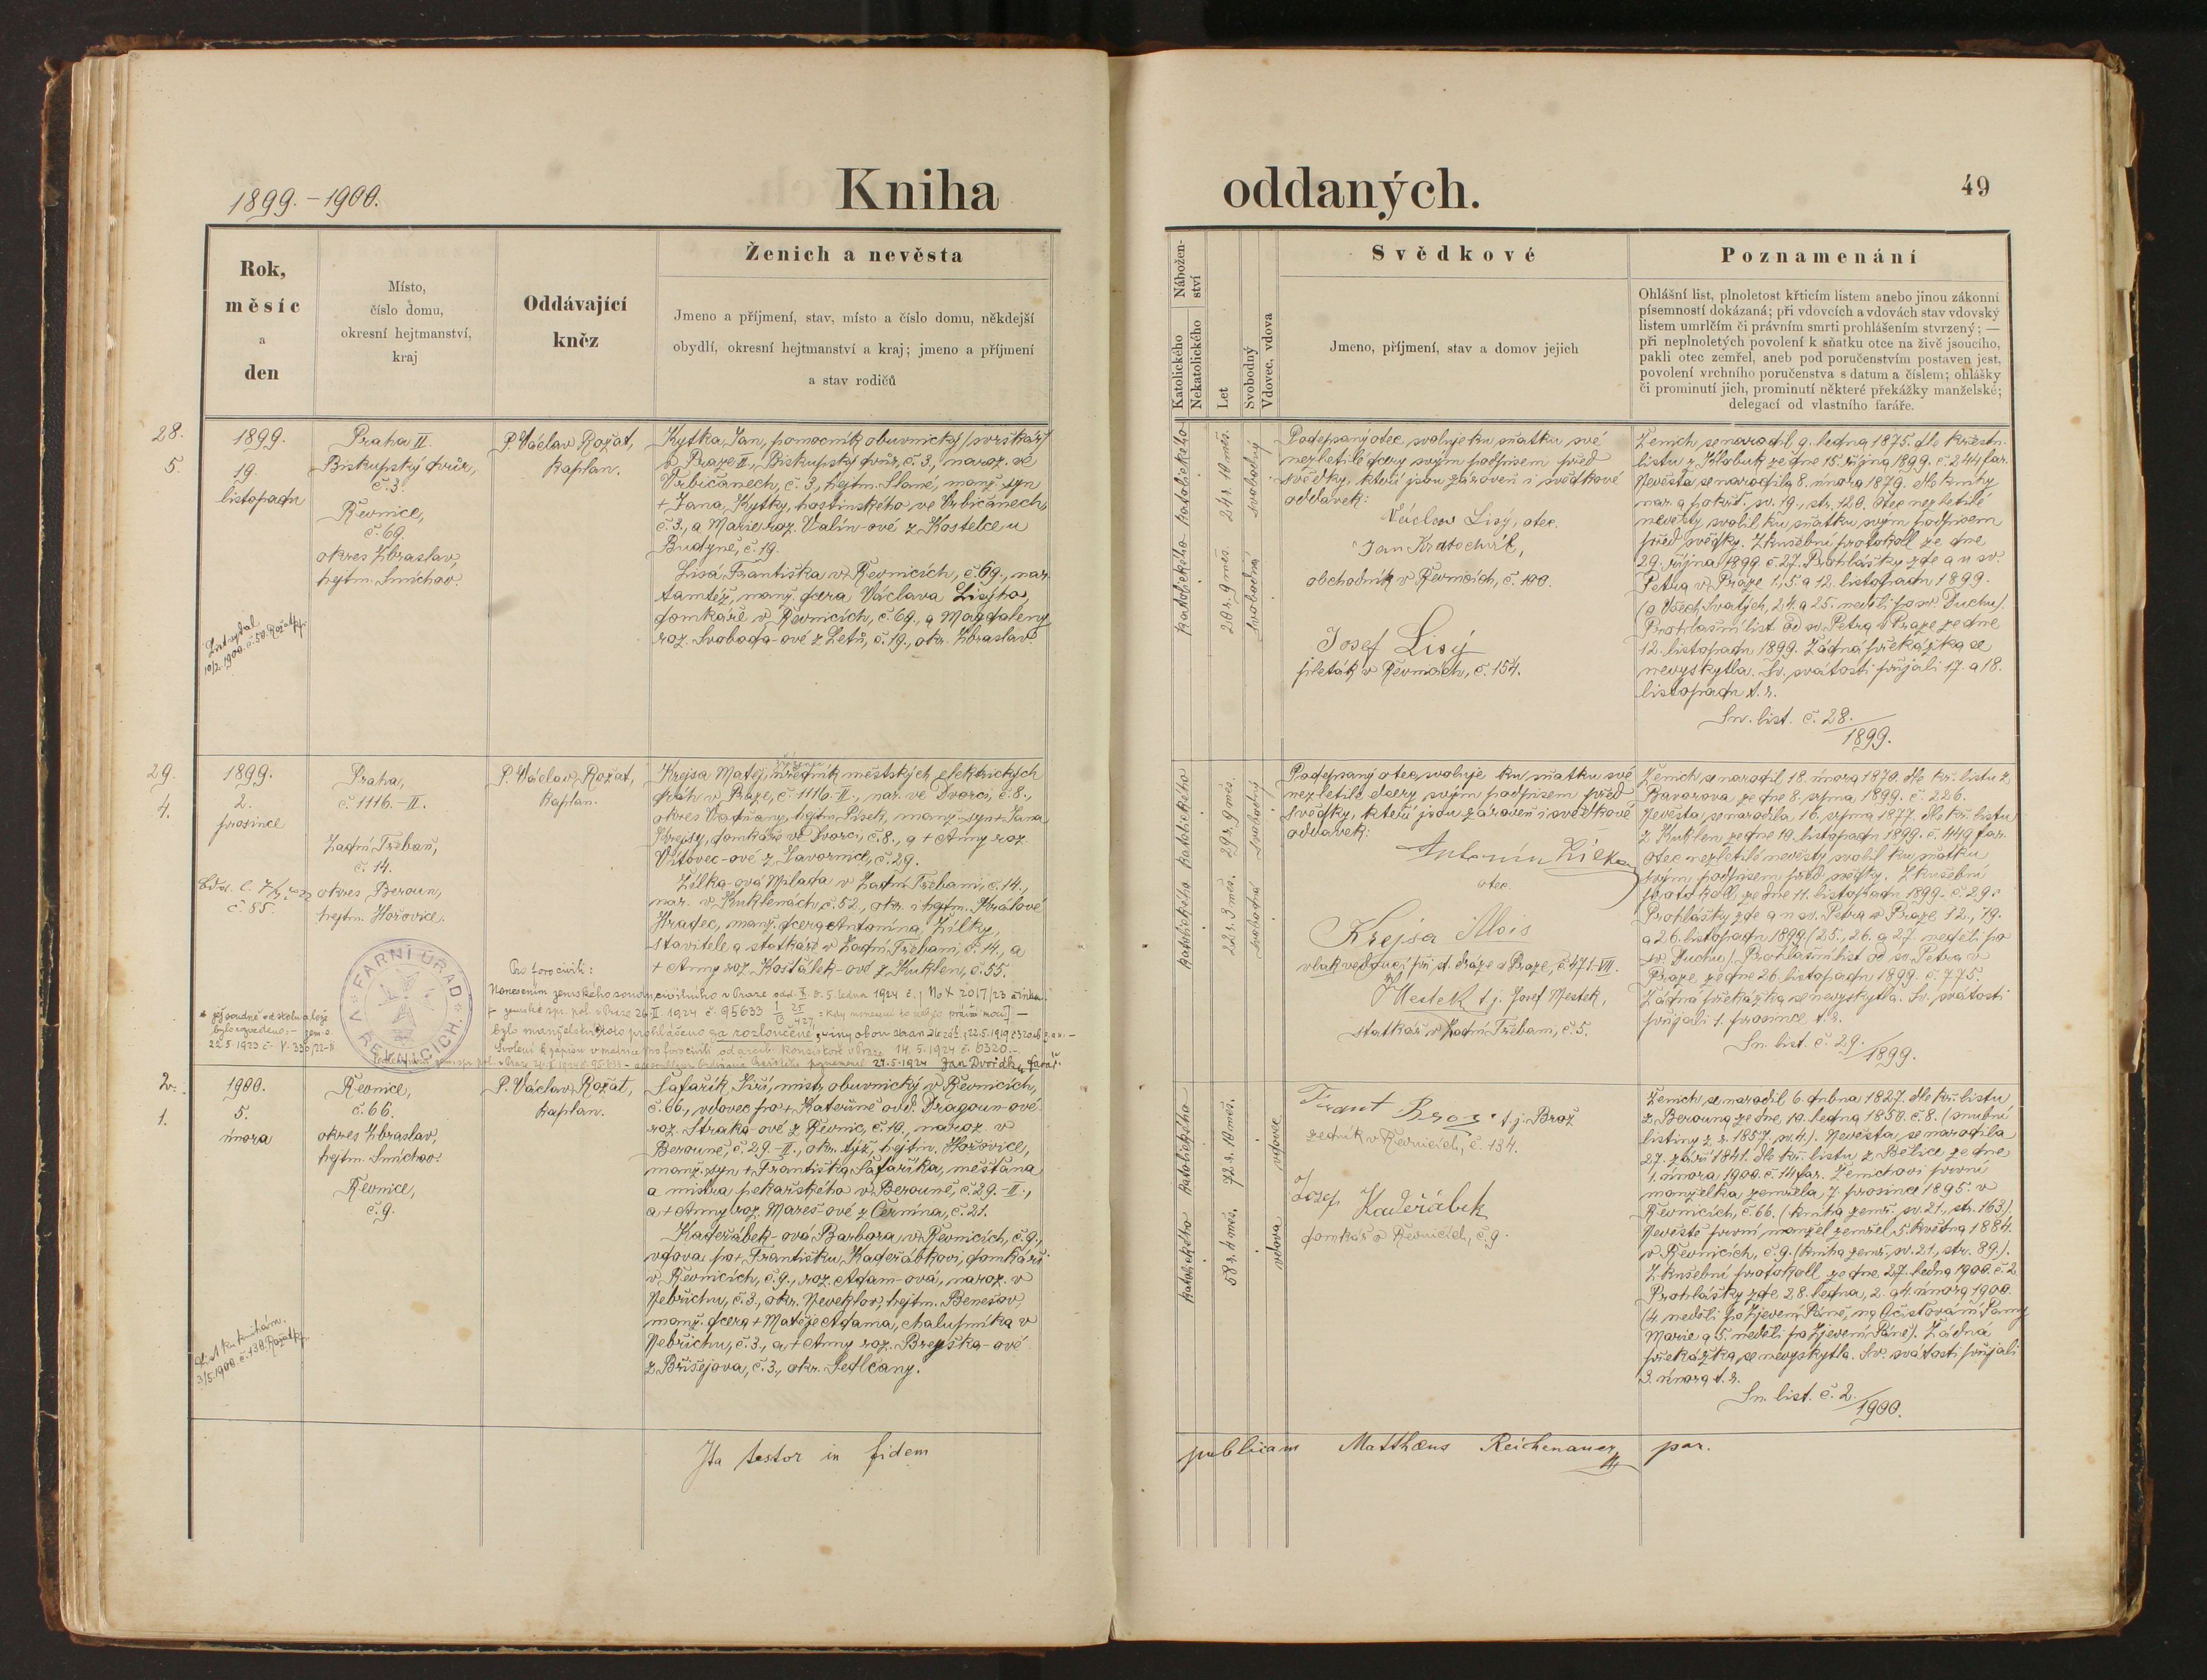 1899.–1900.
Kniha
oddaných.
49
Rok,
měsíc
a
den
Místo,
číslo domu,
okresní hejtmanství,
kraj
Oddávající
kněz
Ženich a nevěsta
Jmeno a příjmení, stav, místo a číslo domu, někdejší
obydlí, okresní hejtmanství a kraj; jmeno a příjmení
a stav rodičů
Nábožen-
ství
Katolického
Nekatolického
Let
Svobodný
Vdovec, vdova
Svědkové
Jmeno, příjmení, stav a domov jejich
Poznamenání
Ohlášní list, plnoletost křticím listem anebo jinou zákonní
písemností dokázaná; při vdovcích a vdovách stav vdovský
listem umrlčím či právním smrti prohlášením stvrzený; —
při neplnoletých povolení k sňatku otce na živě jsoucího,
pakli otec zemřel, aneb pod poručenstvím postaven jest,
povolení vrchního poručenstva s datum a číslem; ohlášky
či prominutí jich, prominutí některé překážky manželské;
delegací od vlastního faráře.
28.
5.
1899.
19.
listopadu
List vydal
10/2. 1900. č. 50. Rožat
Praha II.
Biskupský dvůr,
č. 3.
Řevnice,
č. 69.
okres Zbraslav,
hejtm. Smíchov.
P. Václav Rožat,
kaplan.
Kytka Jan, pomocník obuvnický (svrškář)
v Praze II., Biskupský dvůr, č. 3., naroz. ve
Vrbičanech, č. 3., hejtm. Slané, manž. syn
+ Jana Kytky, hostinského ve Vrbičanech,
č. 3., a Marie roz. Valín-ové z Kostelce u
Budyně, č. 19.
Lisá Františka v Řevnicích, č. 69., nar.
tamtéž, manž. dcera Václava Lisýho,
domkáře v Řevnicích, č. 69., a Magdaleny
roz. Svoboda-ové z Letů, č. 19., okr. Zbraslav.
katolického
katolického
24 r. 10 měs.
20 r. 9 měs.
svobodný
svobodná
Podepsaný otec svoluje ku sňatku své
nezletilé dcery svým podpisem před
svědky, kteří jsou zároveň i svědkové
oddavek:
Václav Lisý, otec.
Jan Kratochvíl,
obchodník v Řevnicích, č. 100.
Josef Lisý
pleták v Řevnicích, č. 154.
Ženich se narodil 9. ledna 1875. dle křestn.
listu z Klobuk ze dne 15. října 1899. č. 244 far.
Nevěsta se narodila 8. února 1879. dle knihy
nar. a pokřt. sv. 19., str. 120. Otec nezletilé
nevěsty svolil ku sňatku svým podpisem
před svědky. Zkušební protokoll ze dne
29. října 1899. č. 27. Prohlášky zde a u sv.
Petra v Praze 1., 5. a 12. listopadu 1899.
(o Všech Svatých, 24. a 25. neděli po sv. Duchu).
Prohlašní list od sv. Petra v Praze ze dne
12. listopadu 1899. Žádná překážka se
nevyskytla. Sv. svátosti přijali 17. a 18.
listopadu t. r.
Sn. list. č. 28./1899.
29.
4.
1899.
2.
prosince
č. 85.
Praha,
č. 1116.-II.
Zadní Třebaň,
č. 14.
okres Beroun,
hejtm. Hořovice.
P. Václav Rožat,
kaplan.
Krejsa Matěj, úředník městských elektrických
drah v Praze, č. 1116.-II., nar. ve Dvorci, č. 8.,
okres Vodňany, hejtm. Písek, manž. syn + Jana
Krejsy, domkáře ve Dvorci, č. 8., a + Anny roz.
Vítovec-ové z Javornice, č. 29.
Žílka-ová Mlada v Zadní Třebani, č. 14.,
nar. v Kuklenách, č. 52., okr. i hejtm. Králové
Hradec, manž. dcera Antonína Žílky,
stavitele a statkáře v Zadní Třebani, č. 14., a
+ Anny roz. Košťálek-ové z Kuklen, č. 55.
FARNÍ ÚŘAD
V ŘEVNICÍCH
Pro foro civili:
Nonesením zemského soudu civilního v Praze odd. X. d. 5. ledna 1924 č. j. No X 2017/23
zemské spr. pol. v Praze 26.II 1924 č. 95633
bylo manželství toto prohlášeno za rozloučené z viny obou stran dle zák. z 22.5.1919 č 320
Svolení k zápisu v matrice pro foro civili od arcib. konsistoře v Praze 14.5.1924 č. 6320.–
27.5.1924 Jan Dvořák, farář.
katolického
katolického
29 r. 9 měs.
22 r. 3 měs.
svobodný
svobodná
Podepsaný otec svoluje ku sňatku své
nezletilé dcery svým podpisem před
svědky, kteří jsou zároveň i svědkové
oddavek:
Antonín Žílka
otec.
Krejsa Alois
vlakvedoucí při st. dráze v Praze, č. 471.-VII.
J Mestek t. j. Josef Mestek,
statkář v Zadní Třebani, č. 5.
Ženich se narodil 18. února 1870. dle kř. listu z
Bavorova ze dne 8. srpna 1899. č. 226.
Nevěsta se narodila 16. srpna 1877. dle kř. listu
z Kuklen ze dne 10. listopadu 1899. č. 449 far.
Otec nezletilé nevěsty svolil ku sňatku
svým podpisem před svědky. Zkušební
protokoll ze dne 11. listopadu 1899. č. 29.
Prohlášky zde a u sv. Petra v Praze 12., 19.
a 26. listopadu 1899 (25., 26. a 27. neděli po
sv. Duchu). Prohlašní list od sv. Petra v
Praze ze dne 26. listopadu 1899. č. 775.
Žádná překážka se nevyskytla. Sv. svátosti
přijali 1. prosince t. r.
Sn. list. č. 29./1899.
2.
1.
1900.
5.
února
3/5. 1900. č. 130. Rožat
Řevnice,
č. 66.
okres Zbraslav,
hejtm. Smíchov.
Řevnice,
č. 9.
P. Václav Rožat,
kaplan.
Šafařík Jiří, mistr obuvnický v Řevnicích,
č. 66., vdovec po + Kateřině ovd. Dragoun-ové
roz. Straka-ové z Řevnic, č. 19., naroz. v
Berouně, č. 29.-II., okr. týž, hejtm. Hořovice,
manž. syn + Františka Šafaříka, měšťana
a mistra pekařského v Berouně, č. 29.-II.,
a + Anny roz. Mareš-ové z Černína, č. 21.
Kadeřábek-ová Barbora, v Řevnicích, č. 9.,
vdova po + Františku Kadeřábkovi, domkáři
v Řevnicích, č. 9., roz. Adam-ová, naroz. v
Nebřichu, č. 3., okr. Neveklov, hejtm. Benešov,
manž. dcera + Matěje Adama, chalupníka v
Nebřichu, č. 3., a + Anny roz. Breyška-ové
z Břišejova, č. 3., okr. Sedlčany.
katolického
katolického
72 r. 10 měs.
58 r. 4 měs.
vdovec
vdova
Frant Broz t. j. Brož
zedník v Řevnicích, č. 134.
Josef Kadeřábek
domkář v Řevnicích, č. 9.
Ženich se narodil 6. dubna 1827. dle kř. listu
z Berouna ze dne 10. ledna 1850. č. 8. (snubní
listiny z r. 1857. sv. 4.). Nevěsta se narodila
27. září 1841. dle kř. listu z Bělice ze dne
1. února 1900. č. 14 far. Ženichovi první
manželka zemřela 7. prosince 1895. v
Řevnicích, č. 66. (kniha zemř. sv. 21., str. 163.).
Nevěstě první manžel zemřel 5. května 1884.
v Řevnicích, č. 9. (kniha zemř. sv. 21., str. 89.).
Zkušební protokoll ze dne 27. ledna 1900. č. 2.
Prohlášky zde 28. ledna, 2. a 4. února 1900.
(4. neděli po Zjevení Páně, na Očisťování Panny
Marie a 5. neděli po Zjevení Páně). Žádná
překážka se nevyskytla. Sv. svátosti přijali
3. února t. r.
Sn. list. č. 2./1900.
Ita testor in fidem publicam Matthæus Reichenauer par.